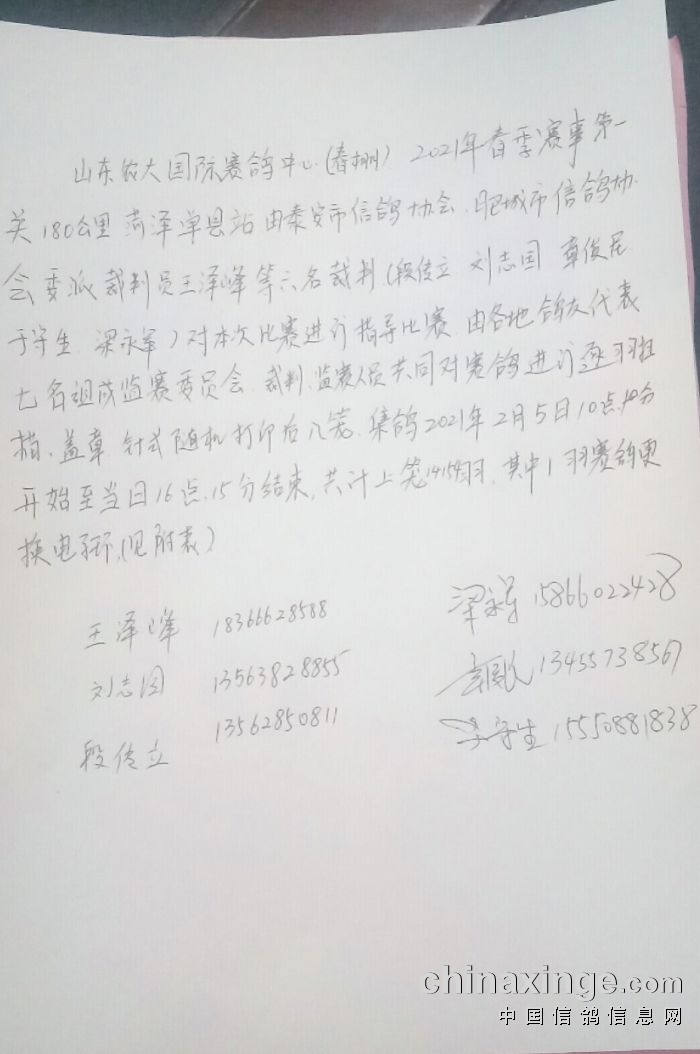 山东农大国际赛鸽中心(春棚) 2021年春季赛事第一
关180公里 菏泽单县站 由泰安市信鸽协会、肥城市信鸽协
会委派裁判员王泽峰等六名裁判(段传立 刘志国 章俊民
于守生 梁永军)对本次比赛进行指导比赛 由各地鸽友代表
七名组成监赛委员会 裁判、监赛人员共同对赛鸽进行逐羽扭
棓、盖章 针式随机打印后入笼. 集鸽2021年2月5日10点 分
开始至当日16点.15分结束, 共计上笼 羽, 其中1羽赛鸽更
换电子环,(见附表)
王泽峰 18366628588
梁永军 15866022428
刘志国 13563828855
章俊民 13455738567
段传立 13562850811
于守生 15550881838
chinaxinge.com
中国信鸽信息网